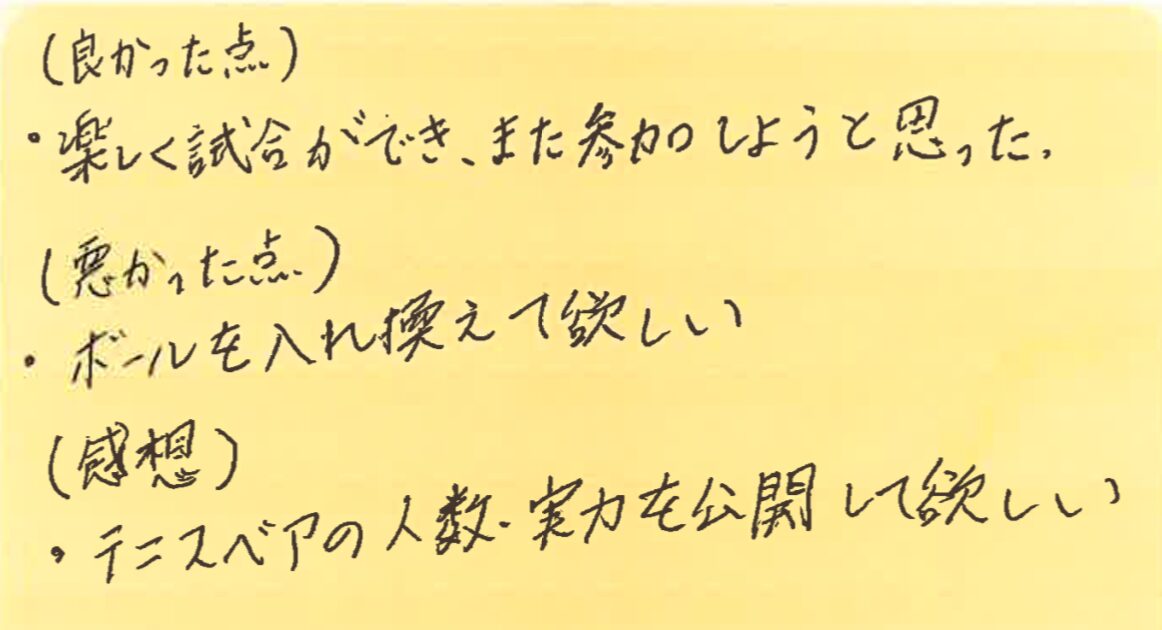 (良かった点)
・楽しく試合ができ、また参加しようと思った。
(悪かった点)
・ボールを入れ換えて欲しい
(感想)
・テニスベアの人数・実力を公開して欲しい